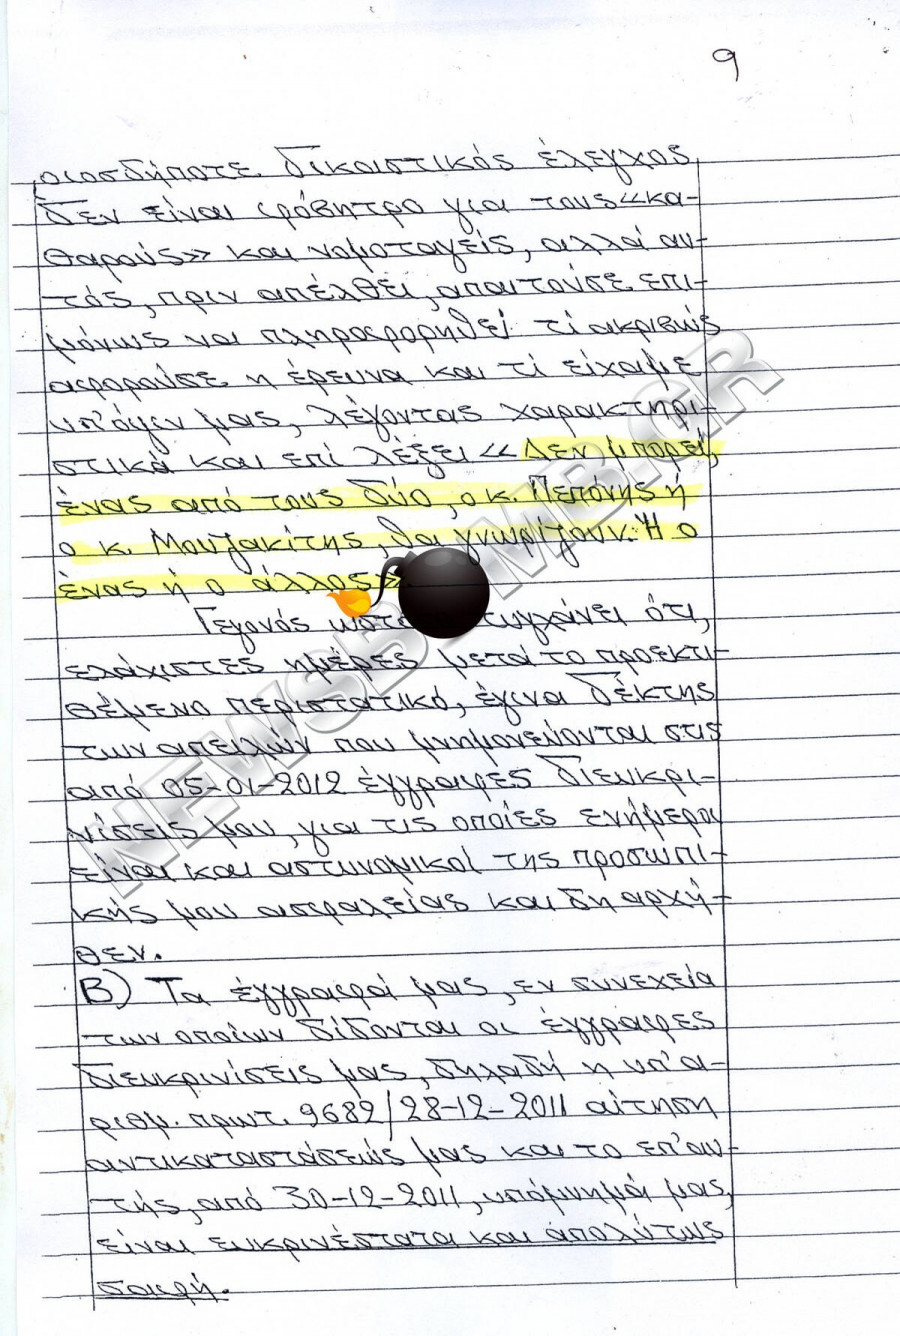 9
οιοσδήποτε δικαστικός έλεγχος
δεν είναι φόβητρο για τους «κα-
θαρούς» και νομοταγείς, αλλά αυ-
τός, πριν απέλθει, απαιτούσε επι-
μόνως να πληροφορηθεί τί ακριβώς
αφορούσε η έρευνα και τί είχαμε
υπ'όψιν μας, λέγοντας χαρακτηρι-
στικά και επί λέξει «Δεν μπορεί,
ένας από τους δύο, ο κ. Πεπόνης ή
ο κ. Μουζακίτης, θα γνωρίζουν. Ή ο
ένας ή ο άλλος».
Γεγονός τυγχάνει ότι,
ελάχιστες ημέρες μετά το προεκτι-
θέμενο περιστατικό, έγινα δέκτης
των απειλών που μνημονεύονται στις
από 05-01-2012 έγγραφες διευκρι-
νίσεις μου, για τις οποίες ενήμεροι
είναι και αστυνομικοί της προσωπι-
κής μου ασφαλείας και δη αρχή-
θεν.
Β) Τα έγγραφά μας, εν συνεχεία
των οποίων δίδονται οι έγγραφες
διευκρινίσεις μας, δηλαδή η υπ'α-
ριθμ. πρωτ. 9682/28-12-2011 αίτηση
αντικαταστάσεώς μας και το επ'αυ-
τής, από 30-12-2011, υπόμνημά μας,
είναι ευκρινέστατα και απολύτως
σαφή.
NEWSBOMB.GR